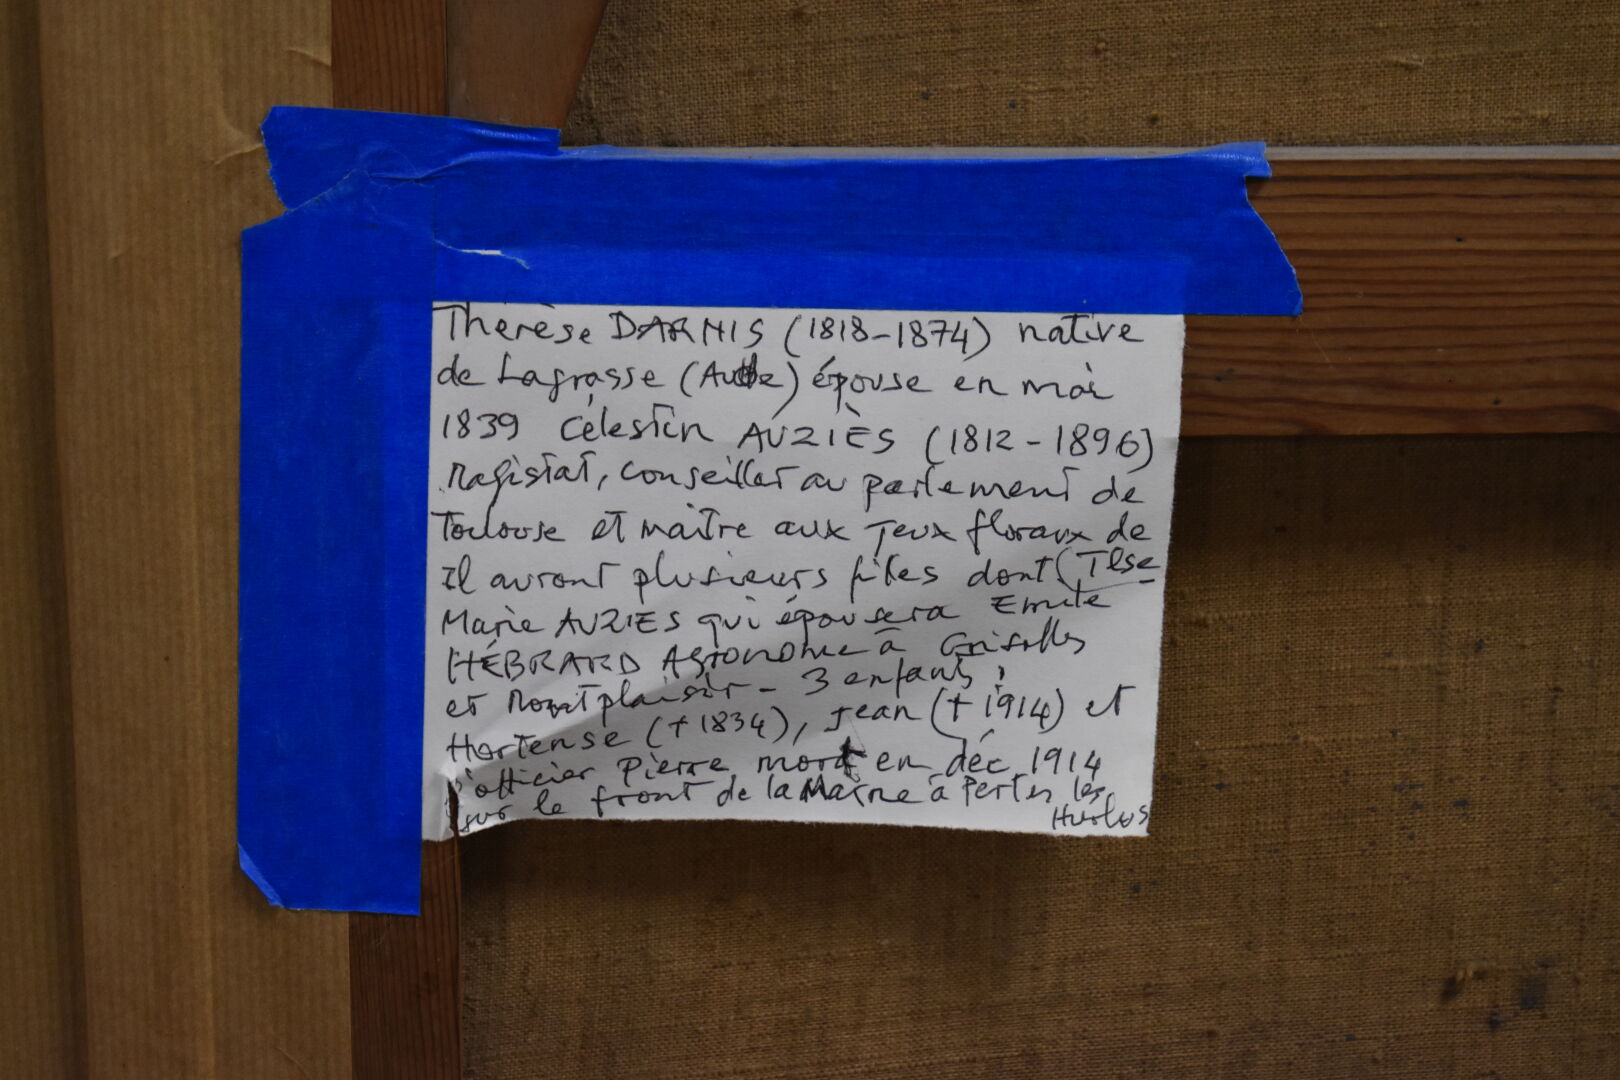 Thérèse DARNIS (1818-1874) native
de Lagrasse (Aude) épouse en mai
1839 Célestin AUZIÈS (1812-1896)
Magistat, conseiller au parlement de
Toulouse et maître aux Jeux floraux de
Il auront plusieurs filles dont (Tlse
Marie AUZIES qui épousera Emile
HÉBRARD Agronome à Grisolles
et Montplaisir - 3 enfants :
Hortense (+1834), Jean (+1914) et
l'officier Pierre mort en déc 1914
sur le front de la Marne à Perthes les
Hurlus